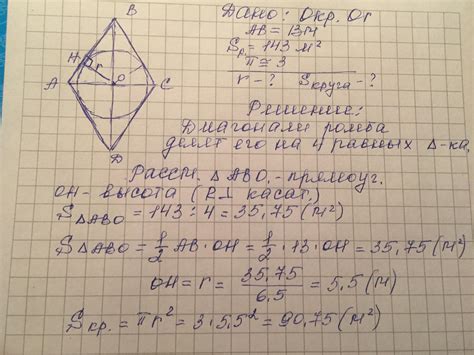 B
H
r
A
O
C
D
Дано: Окр. Or
AB = 13м
Sр. = 143 м²
π ≅ 3
r - ?  Sкруга - ?
Решение:
Диагонали ромба
делят его на 4 равных Δ-ка.
Рассм. ΔABO. - прямоуг.
OH - высота (R⊥ касат.)
SΔABO = 143 : 4 = 35,75 (м²)
SΔABO = 1/2 AB · OH = 1/2 · 13 · OH = 35,75 (м²)
OH = r = 35,75/6,5 = 5,5 (м)
Sкр. = πr² = 3 · 5,5² = 90,75 (м²)